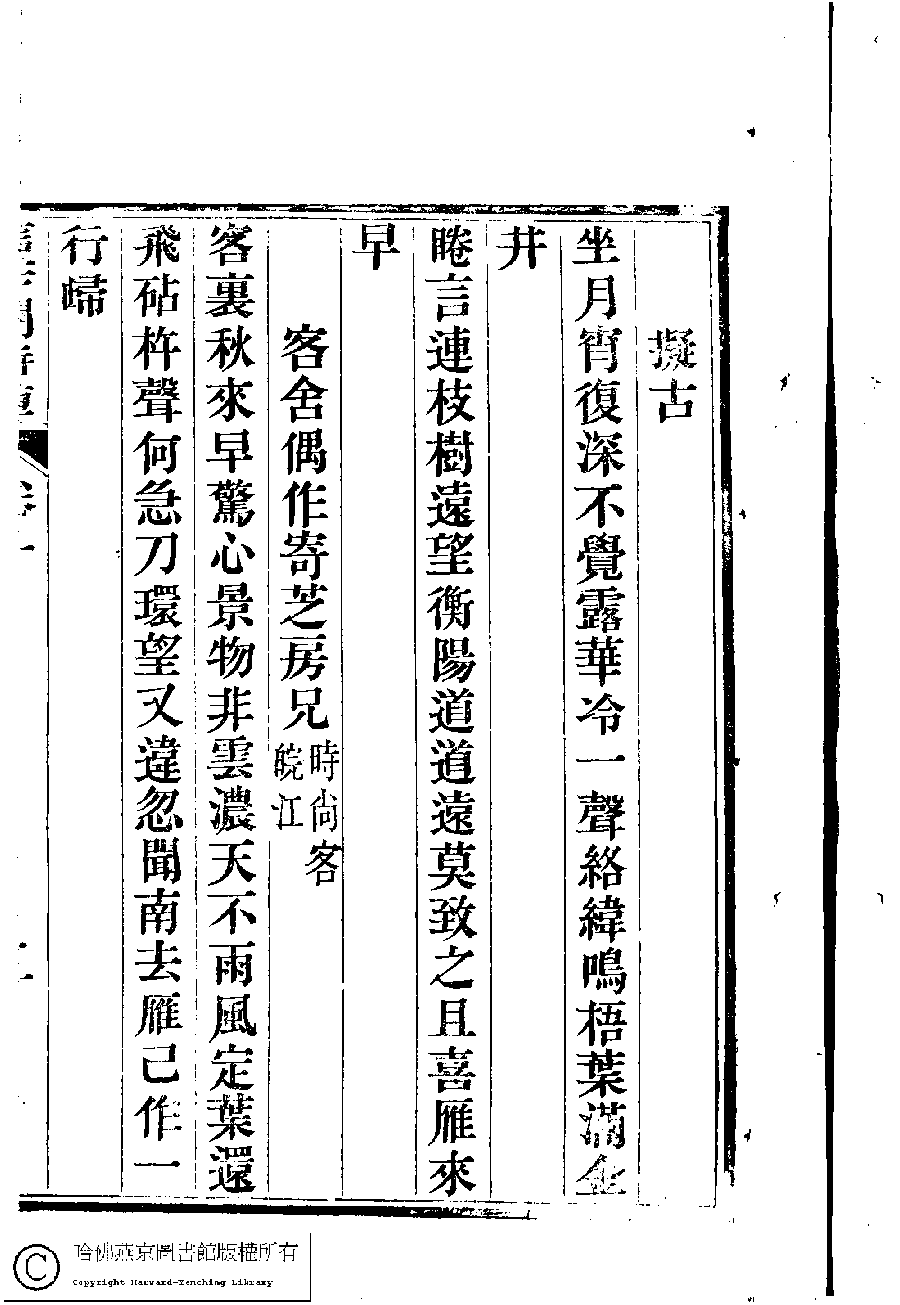 擬古
坐月宵復深不覺露華冷一聲絡緯鳴梧葉滿金
井
睠言連枝樹遠望衡陽道道遠莫致之且喜雁來
早
客舍偶作寄芝房兄時尚客皖江
客裏秋來早驚心景物非雲濃天不雨風定葉還
飛砧杵聲何急刀環望又違忽聞南去雁己作一
行歸
卷一
哈佛燕京圖書館版權所有
Copyright Harvard-Yenching Library